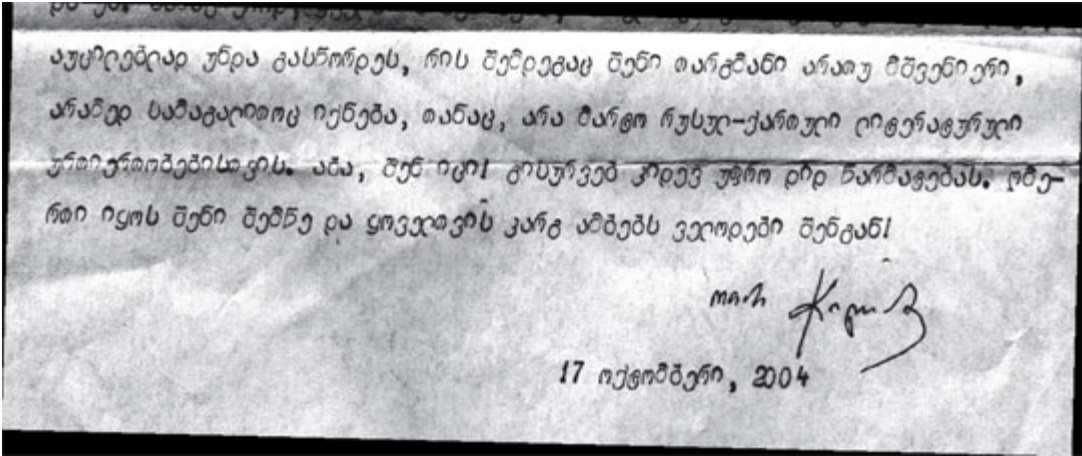 აუცილებლად უნდა გასწორდეს, რის შემდეგაც შენი თარგმანი არათუ მშვენიერი,
არამედ სამაგალითოც იქნება, თანაც, არა მარტო რუსულ-ქართული ლიტერატურული
ურთიერთობებისთვის. აბა, შენ იცი! გისურვებ კიდევ უფრო დიდ წარმატებას. ღმე-
რთი იყოს შენი შემწე და ყოველთვის კარგ ამბებს ველოდები შენგან!
17 ოქტომბერი, 2004